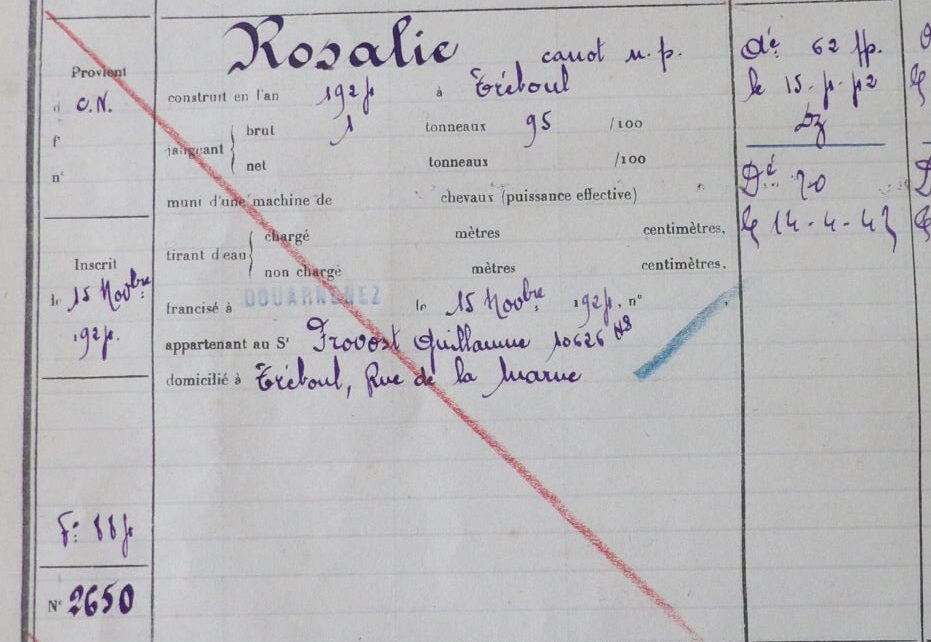 Rosalie canot n.p.
Provient
d C.N.
f°
n°
construit en l'an 192 à Tréboul
jaugeant
brut 1 tonneaux 95 /100
net tonneaux /100
muni d'une machine de chevaux (puissance effective)
tirant d'eau
chargé mètres centimètres,
non chargé mètres centimètres,
Inscrit
le 15 Novbre
192
francisé à DOUARNENEZ le 15 Novbre 192 , n°
appartenant au Sr Provost Guillaume 10626
domicilié à Tréboul, Rue de la Marne
F:
N° 2650
dé 62
le 15
Dé 20
le 14-4-43